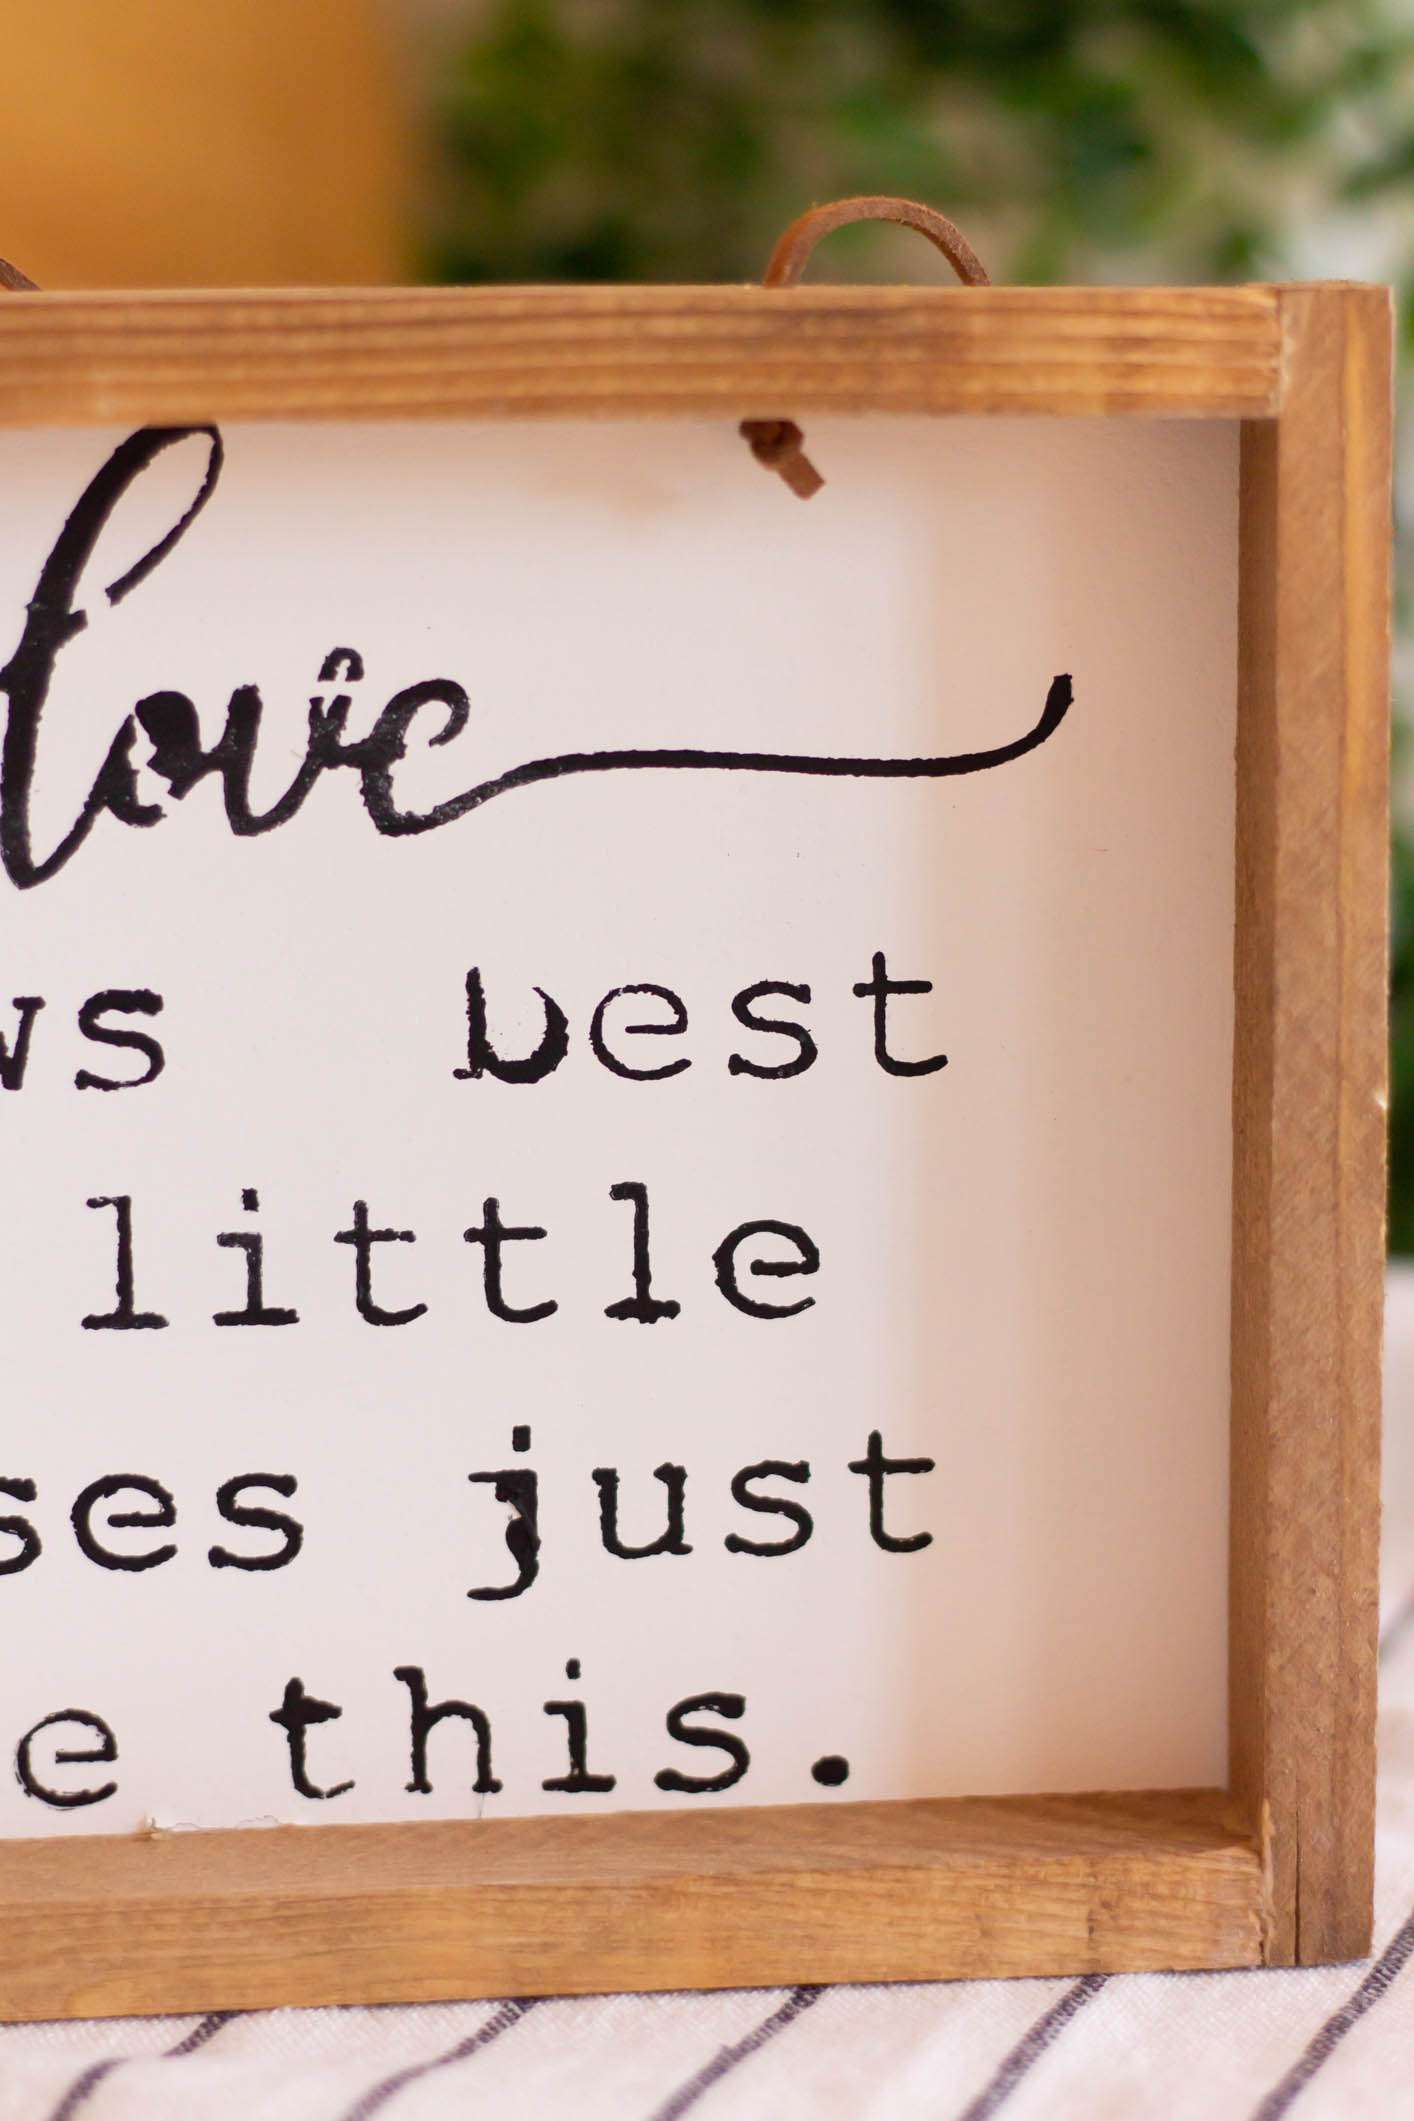 love
ws best
little
ses just
e this.